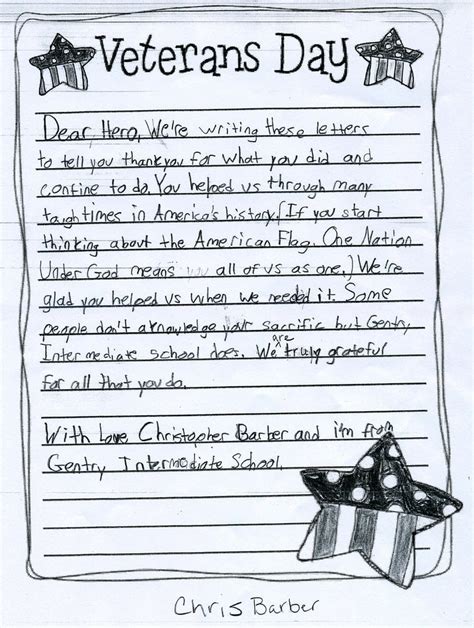 Veterans Day
Dear, Hero, We're writing these letters
to tell you thankyou for what you did and
confine to do. You helped us through many
taughtimes in America's history. (If you start
thinking about the American Flag. One Nation
Under God means you all of us as one.) We're
glad you helped us when we needed it. Some
people don't aknowledge your sacrific but Gentry
Intermediate school does. We are truly grateful
for all that you do.
With Love, Christopher Barber and i'm from
Gentry Intermediate School.
Chris Barber